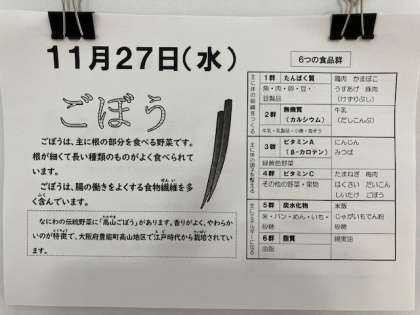 11月27日(水)
ごぼう
ごぼうは、主に根の部分を食べる野菜です。
根が細くて長い種類のものがよく食べられて
います。
ごぼうは、腸の働きをよくする食物繊維を多
く含んでいます。
なにわの伝統野菜に「高山ごぼう」があります。香りがよく、やわらか
いのが特徴で、大阪府豊能町高山地区で江戸時代から栽培されてい
ます。
6つの食品群
1群 たんぱく質
魚・肉・卵・豆・
豆製品
鶏肉 かまぼこ
うすあげ 豚肉
(けずりぶし)
2群 無機質
(カルシウム)
牛乳・乳製品・小魚・海そう
牛乳
(だしこんぶ)
3群 ビタミンA
(β-カロテン)
緑黄色野菜
にんじん
みつば
4群 ビタミンC
その他の野菜・果物
たまねぎ 梅肉
はくさい だいこん
しいたけ ごぼう
5群 炭水化物
米・パン・めん・いも・
砂糖
米飯
じゃがいもでん粉
砂糖
6群 脂質
油脂
綿実油